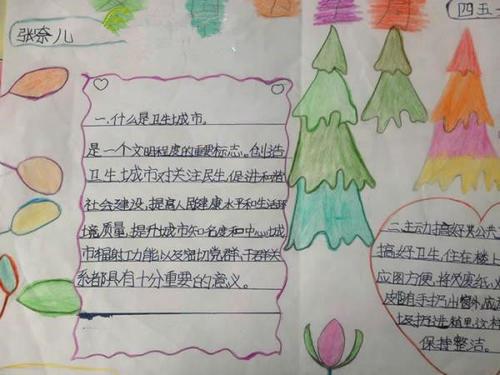 张奈儿
四五
一.什么是卫生城市。
是一个文明程度的重要标志。创造
卫生城市对关注民生,促进和谐
社会建设,提高人民健康水平和生活环
境质量,提升城市知名度和中心城
市辐射功能以及密切党群、干群关
系都具有十分重要的意义。
二.主动搞好公共卫
搞好卫生,住在楼上
应图方便,将废纸、
皮随手扔出窗外,应
圾扔进箱里,这样
保持整洁。